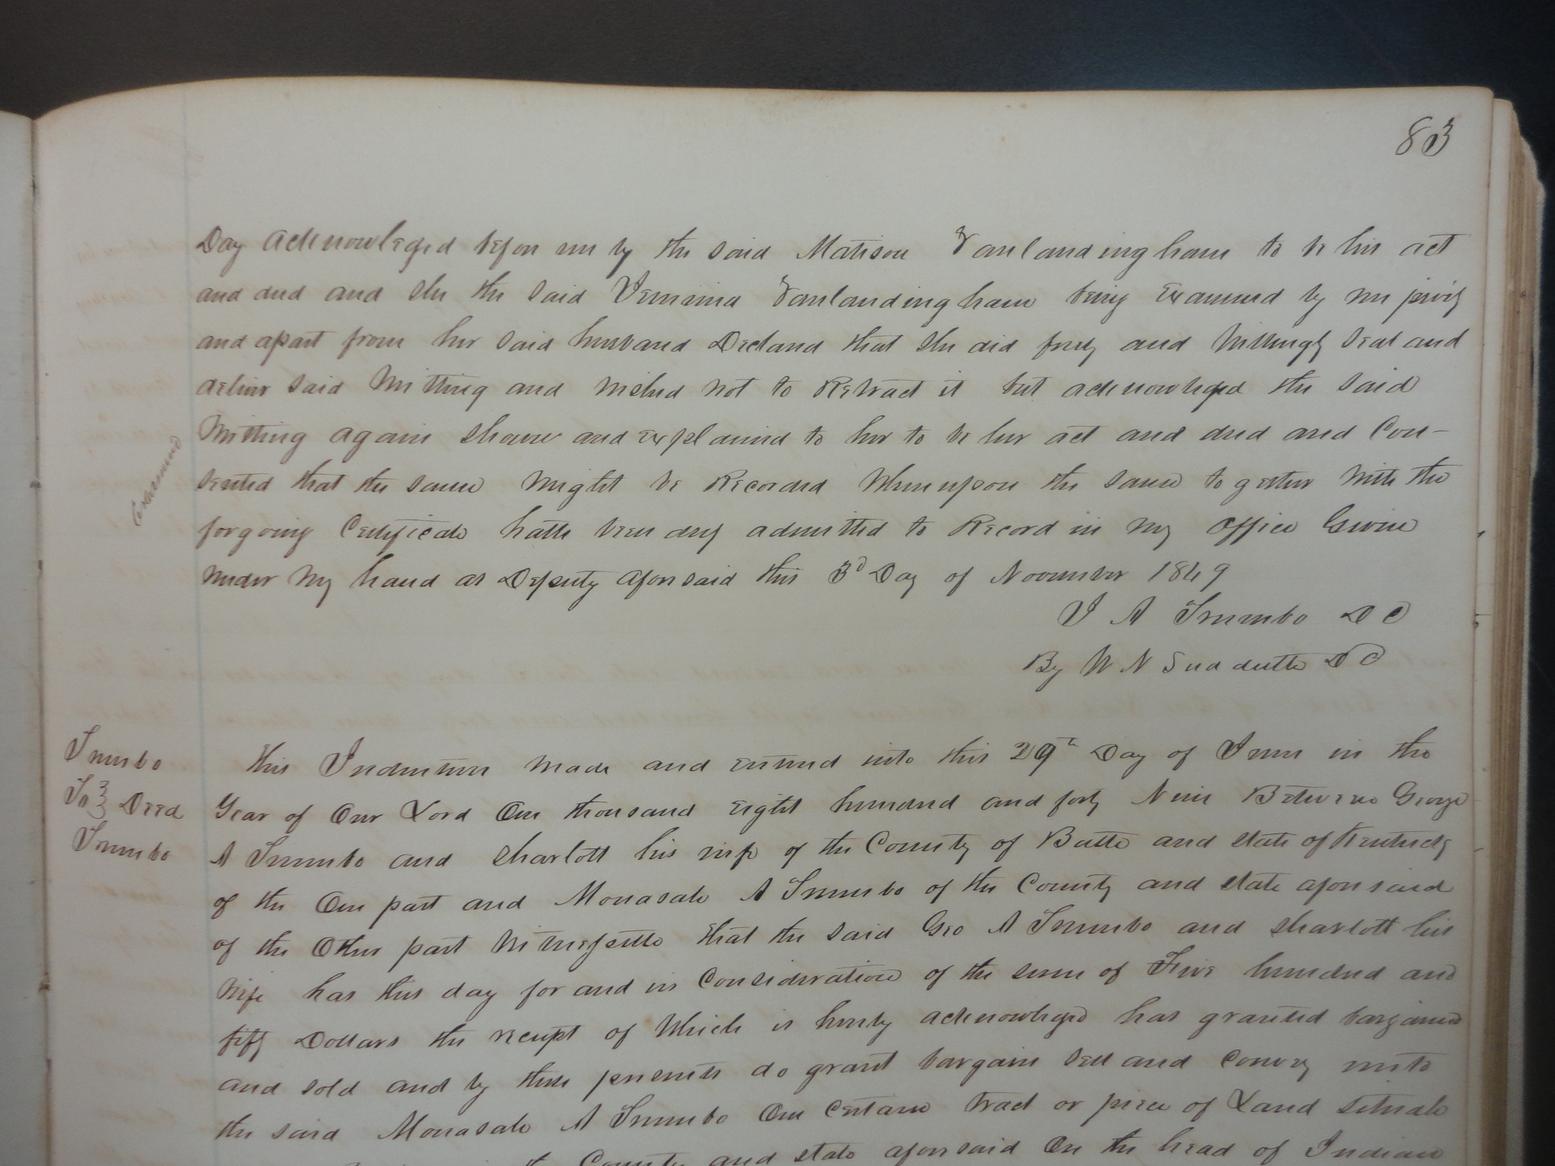 83
Day acknowleged before me by the said Matison Vanlandingham to be his act
and deed and she the said Jemima Vanlandingham being Examined by me privily
and apart from her said husband Declared that she did freely and Willingly seal and
deliver said Writting and wished not to Retract it but acknowleged the said
Writting again shown and explained to her to be her act and deed and Con-
sented that the same Might be Recorded Whereupon the same together With the
forgoing Certificate hath been duly admitted to Record in my office Given
under My hand as Deputy aforesaid this 3d Day of November 1849
J A Trumbo D C
By W N Sudduth D C
Examined
Trumbo
To } Deed
Trumbo
This Indenture Made and entered into this 29th Day of June in the
Year of Our Lord One thousand eight hundred and forty Nine Between George
A Trumbo and Sharlott his wife of the County of Bath and state of Kentucky
of the One part and Monasale A Trumbo of the County and state aforesaid
of the Other part Witnesseth That the said Geo A Trumbo and Sharlott his
Wife has this day for and in Consideration of the sum of Five hundred and
fifty Dollars the receipt of Which is hereby acknowleged has granted bargained
and sold and by these presents do grant bargain sell and convey unto
the said Monasale A Trumbo One Certain tract or piece of Land situate
County and state aforesaid On the head of Indian